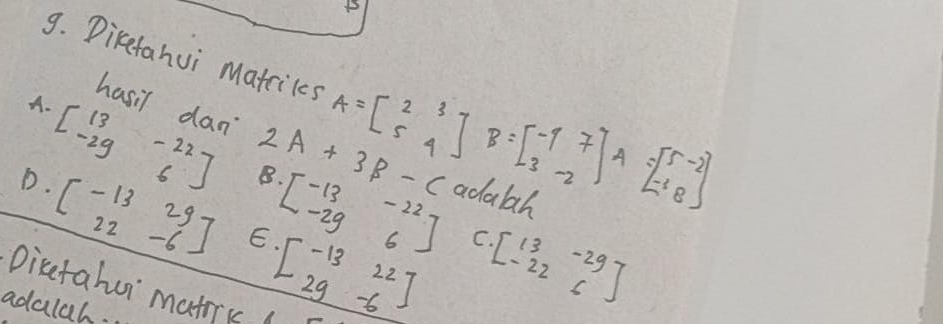 B
9. Diketahui Matriks A = [2 3 5 4] B = [-9 7 3 -2] A = [5 -2 -1 8]
hasil dari 2A + 3B - C adalah
A. [13 -22 -29 6] B. [-13 -22 -29 6] C. [13 -29 -22 6]
D. [-13 29 22 -6] E. [-13 22 29 -6]
Diketahui Matrik
adalah...